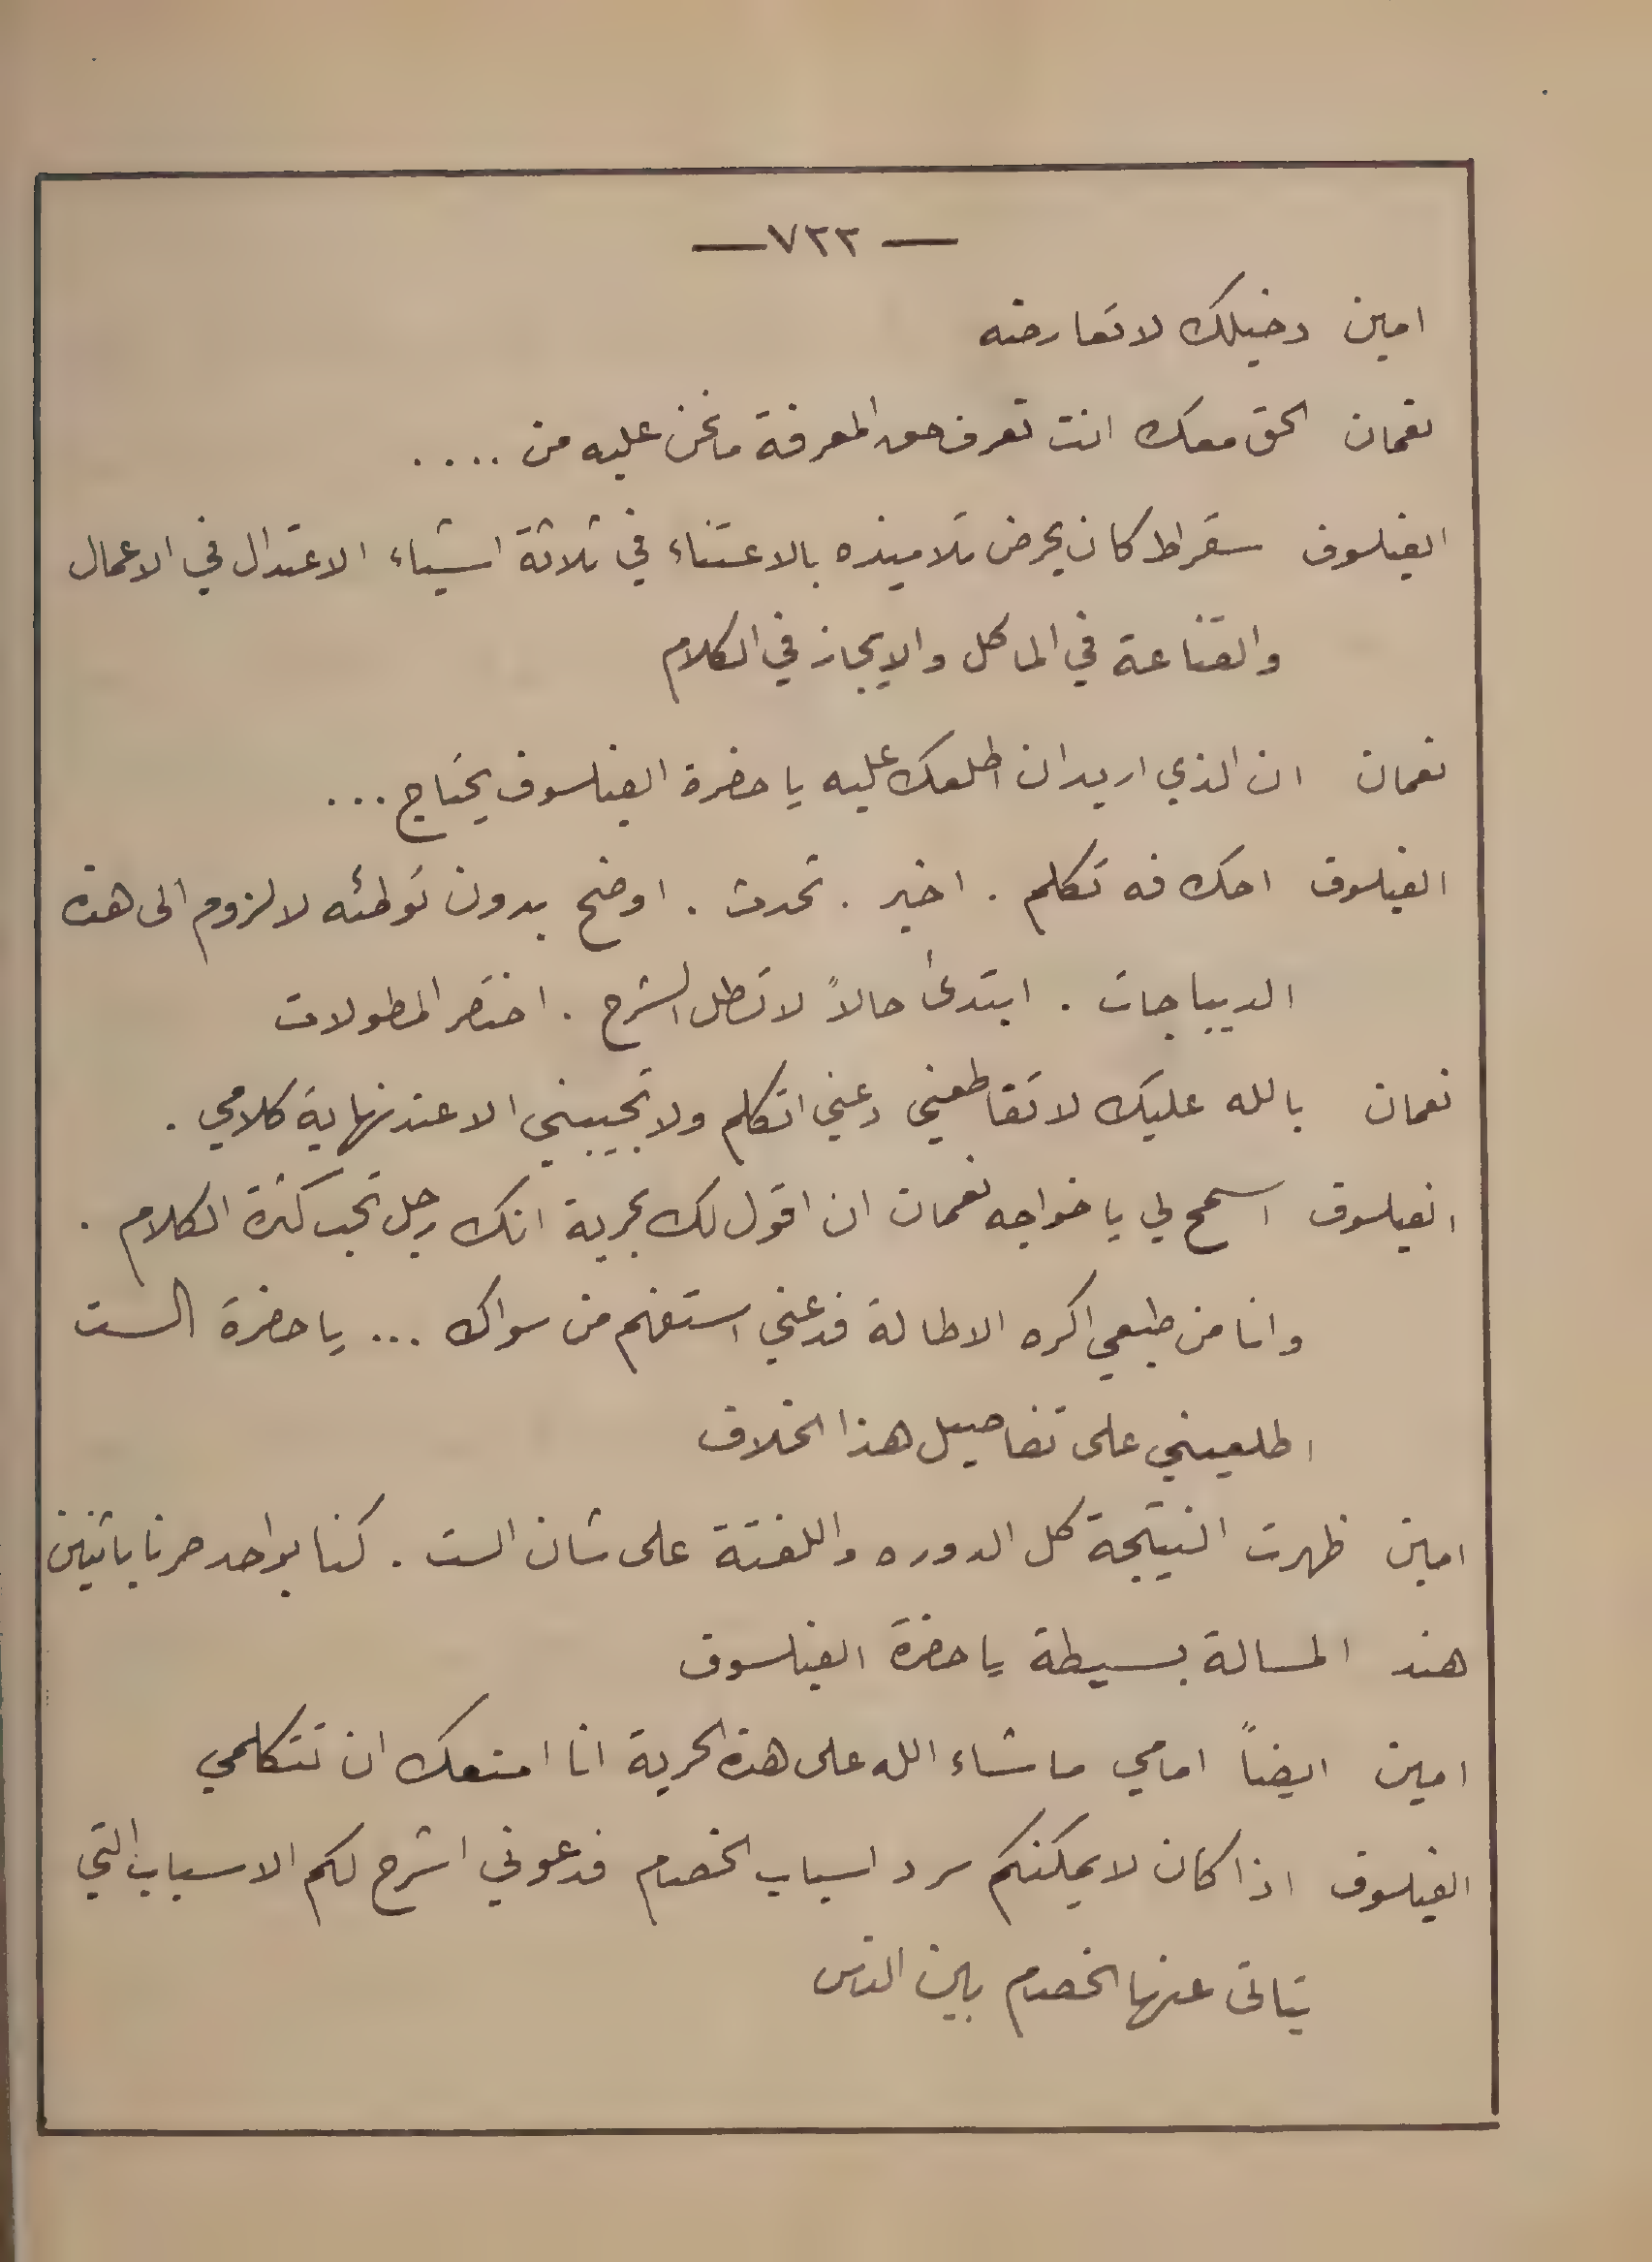 — ٧٢٢ —
امين دخيلك لا تعارضه
نعمان الحق معك انت تعرف حق المعرفة ما نحن عليه من ....
الفيلسوف سقراط كان يحرض تلاميذه بالاعتناء في ثلاثة اشياء الاعتدال في الاعمال
والقناعة في الماكل والايجاز في الكلام
نعمان ان الذي اريد ان اطلعك عليه يا حضرة الفيلسوف يحتاج ...
الفيلسوف احك فه تكلم . اخبر . تحدث . اوضح بدون توطئه لا لزوم الى هذه
الديباجات . ابتدئ حالاً لا تطل الشرح . اختصر المطولات
نعمان بالله عليك لا تقاطعني دعني اتكلم ولا تجيبني الا عند نهاية كلامي .
الفيلسوف اسمح لي يا خواجه نعمان ان اقول لك بحرية انك رجل تحب كثرة الكلام .
وانا من طبعي اكره الاطالة فدعني استفهم من سواك ... يا حضرة الست
اطلعيني على تفاصيل هذا الخلاف
امين ظهرت النتيجة كل الدوره واللفتة على شان الست . كنا بواحد صرنا باثنين
هند المسالة بسيطة يا حضرة الفيلسوف
امين ايضاً امامي ما شاء الله على هذه الحرية انا امنعك ان تتكلمي
الفيلسوف اذا كان لا يمكنكم سرد اسباب الخصام فدعوني اشرح لكم الاسباب التي
يتاتى عنها الخصام بين الناس